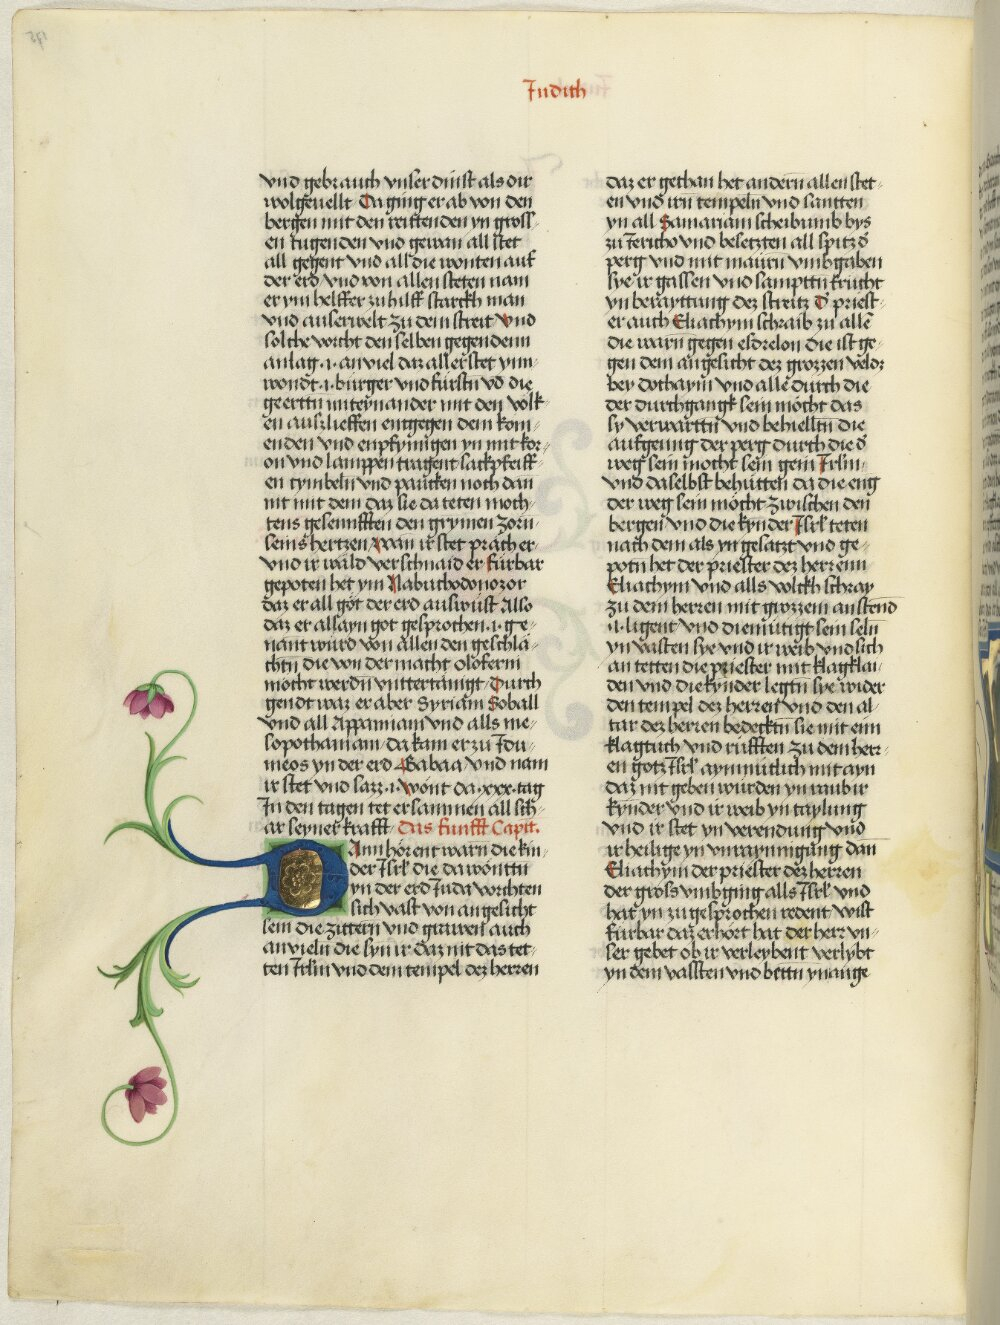 Judith
vnd gebrauch vnser dinst als dir
wolgeuellt Da ging er ab von den
bergen mit den reittenden yn gross-
en tugenden vnd gewan all stet
all gegent vnd all die wonten auf
der erd vnd von allen steten nam
er ym helffer zu hilff starckh man
vnd auserwelt zu dem streit Vnd
solche vorcht den selben gegendenn
anlag .i. an viel daz aller stet ynn-
wondt .i. burger vnd fürstn vō die
geerttn miteynander mit den volk-
en ausz lieffen entgegen dem kom-
enden vnd enpfyngen yn mit kor-
on vnd lamppen tragent sackpfeiff-
en cymbeln vnd paucken noch dan
nit mit dem daz sie da teten moch-
tens gesennfften den grymen zorn
seins hertzen Wan ir stet prach er
vnd ir wald verschnaid er fürbar
gepoten het ym Nabuchodonozor
daz er all göt der erd auswüst Also
daz er allayn got gesprochen .i. ge-
nant würd von allen den geschlä-
chtn die von der macht oloferni
mocht werdn vnttertänigt Durch
gendt waz er aber Syriam Soball
vnd all Appamiam vnd alls me-
sopothamiam da kam er zu Idu-
meos yn der erd Gabaa vnd nam
ir stet vnd sazz .i. wont da .xxx. tag
In den tagen tet er sammen all sch-
ar seyner krafft Das funfft Capit.
DAnn hörent warn die kin-
der Isrl die da wontn
yn der erd Iuda vorchten
sich vast von angesicht
sein die zittern vnd grawen auch
an vieln die synn ir daz nit das tet-
ten Irlm vnd dem tempel dez herren
daz er gethan het andern allen stet-
en vnd irn tempeln vnd santten
yn all Samariam scheibumb bys
zu Iericho vnd besetzten all spitz d̄
perg vnd mit maurn vmbgaben
sye ir gassen vnd sampttn frücht
yn beraýttung dez streitz D̄ priest-
er auch Eliachym schraib zu allē
die warn gegen esdrelon die ist ge-
gen dem angesicht dez grozzen veldz
bey dothaym vnd allē durch die
der durchgangk sein möcht das
sy verwarttn vnd behielltn die
aufgeung der perg durch die d̄
weg sein mocht sein gein Irlm
vnd daselbst behütten da die eng
der weg sein möcht zwischen den
bergen vnd die kynder Isrl teten
nach dem als yn gesatzt vnd ge-
potn het der priester dez herrenn
Eliachym vnd alls volckh schray
zu dem herren mit grozzem anstend
.i. ligent vnd diemütigt sein seln
yn vasten sye vnd ir weib vnd sich
an tetten die priester mit klagklai-
den vnd die kynder legtn sye wider
den tempel dez herren vnd den al-
tar dez herren bedecktn sie mit eim
klagtuch vnd rüfften zu dem herr-
en gotz Isrl aynmütlich mit ayn
daz nit geben würden yn raub ir
kynder vnd ir weib yn taylung
vnd ir stet yn verendung vnd
ir heilige yn vnraynnigung dan
Eliachym der priester dez herren
der gross vmbging alls Isrl vnd
hat yn zu gesprochen redent wist
fürbar daz erhört hat der herr vn-
ser gebet ob ir verleybent verleybt
yn dem vassten vnd bettn yn ange